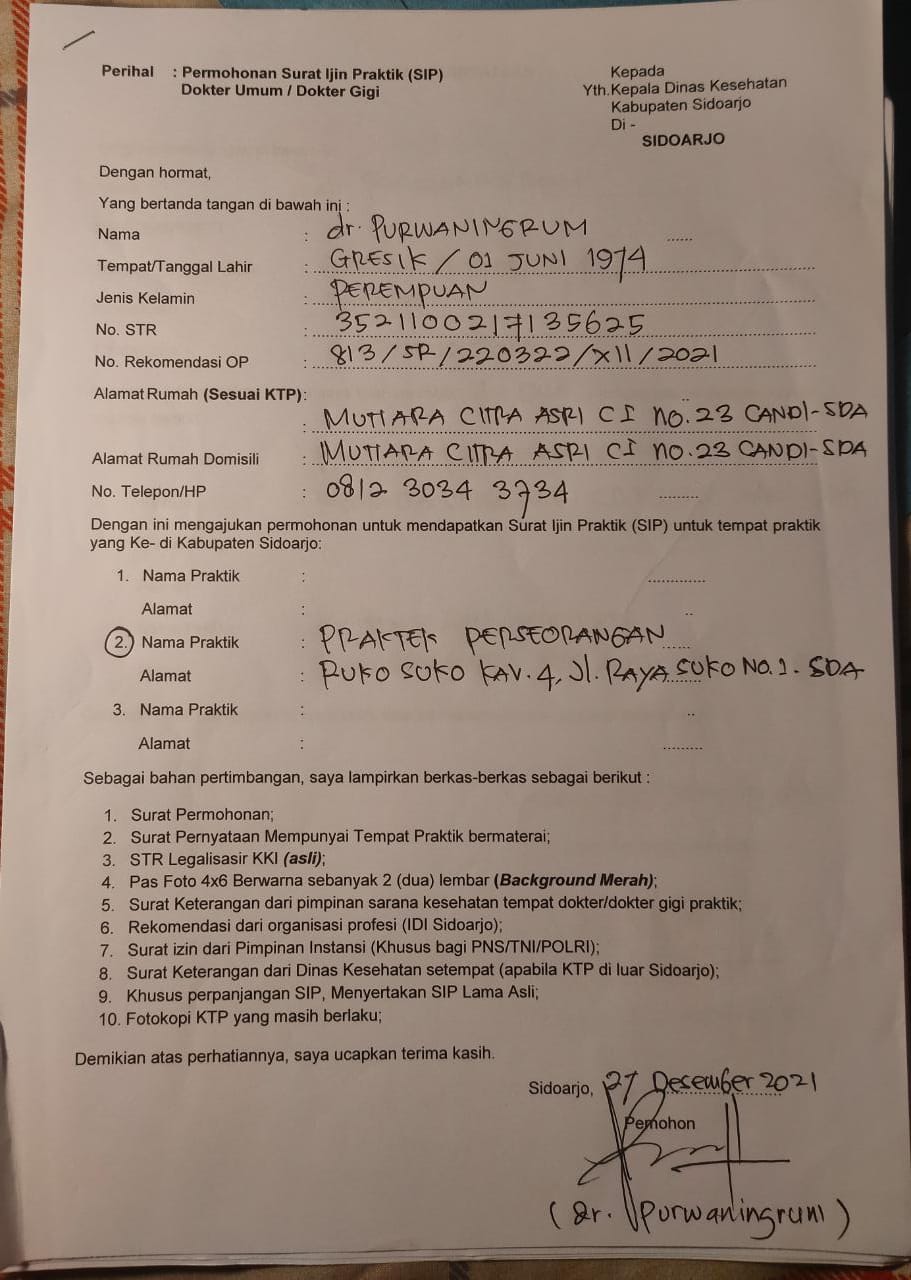 Perihal : Permohonan Surat Ijin Praktik (SIP)
Dokter Umum / Dokter Gigi
Kepada
Yth.Kepala Dinas Kesehatan
Kabupaten Sidoarjo
Di -
SIDOARJO
Dengan hormat,
Yang bertanda tangan di bawah ini :
Nama : dr. PURWANINGRUM ......
Tempat/Tanggal Lahir : GRESIK / 01 JUNI 1974
Jenis Kelamin : PEREMPUAN
No. STR : 3521100217135625
No. Rekomendasi OP : 813/SR/220322/XII/2021
Alamat Rumah (Sesuai KTP):
: MUTIARA CITRA ASRI CI NO.23 CANDI-SDA
Alamat Rumah Domisili : MUTIARA CITRA ASRI CI NO.23 CANDI-SDA
No. Telepon/HP : 0812 3034 3734 .........
Dengan ini mengajukan permohonan untuk mendapatkan Surat Ijin Praktik (SIP) untuk tempat praktik
yang Ke- di Kabupaten Sidoarjo:
1. Nama Praktik : .............
Alamat : ..
2. Nama Praktik : PRAKTEK PERSEORANGAN ......
Alamat : RUKO SUKO KAV. 4, Jl. RAYA SUKO NO. 1 - SDA
3. Nama Praktik : ..
Alamat : .........
Sebagai bahan pertimbangan, saya lampirkan berkas-berkas sebagai berikut :
1. Surat Permohonan;
2. Surat Pernyataan Mempunyai Tempat Praktik bermaterai;
3. STR Legalisasir KKI (asli);
4. Pas Foto 4x6 Berwarna sebanyak 2 (dua) lembar (Background Merah);
5. Surat Keterangan dari pimpinan sarana kesehatan tempat dokter/dokter gigi praktik;
6. Rekomendasi dari organisasi profesi (IDI Sidoarjo);
7. Surat izin dari Pimpinan Instansi (Khusus bagi PNS/TNI/POLRI);
8. Surat Keterangan dari Dinas Kesehatan setempat (apabila KTP di luar Sidoarjo);
9. Khusus perpanjangan SIP, Menyertakan SIP Lama Asli;
10. Fotokopi KTP yang masih berlaku;
Demikian atas perhatiannya, saya ucapkan terima kasih.
Sidoarjo, 27 Desember 2021
Pemohon
(dr. Purwaningrum)